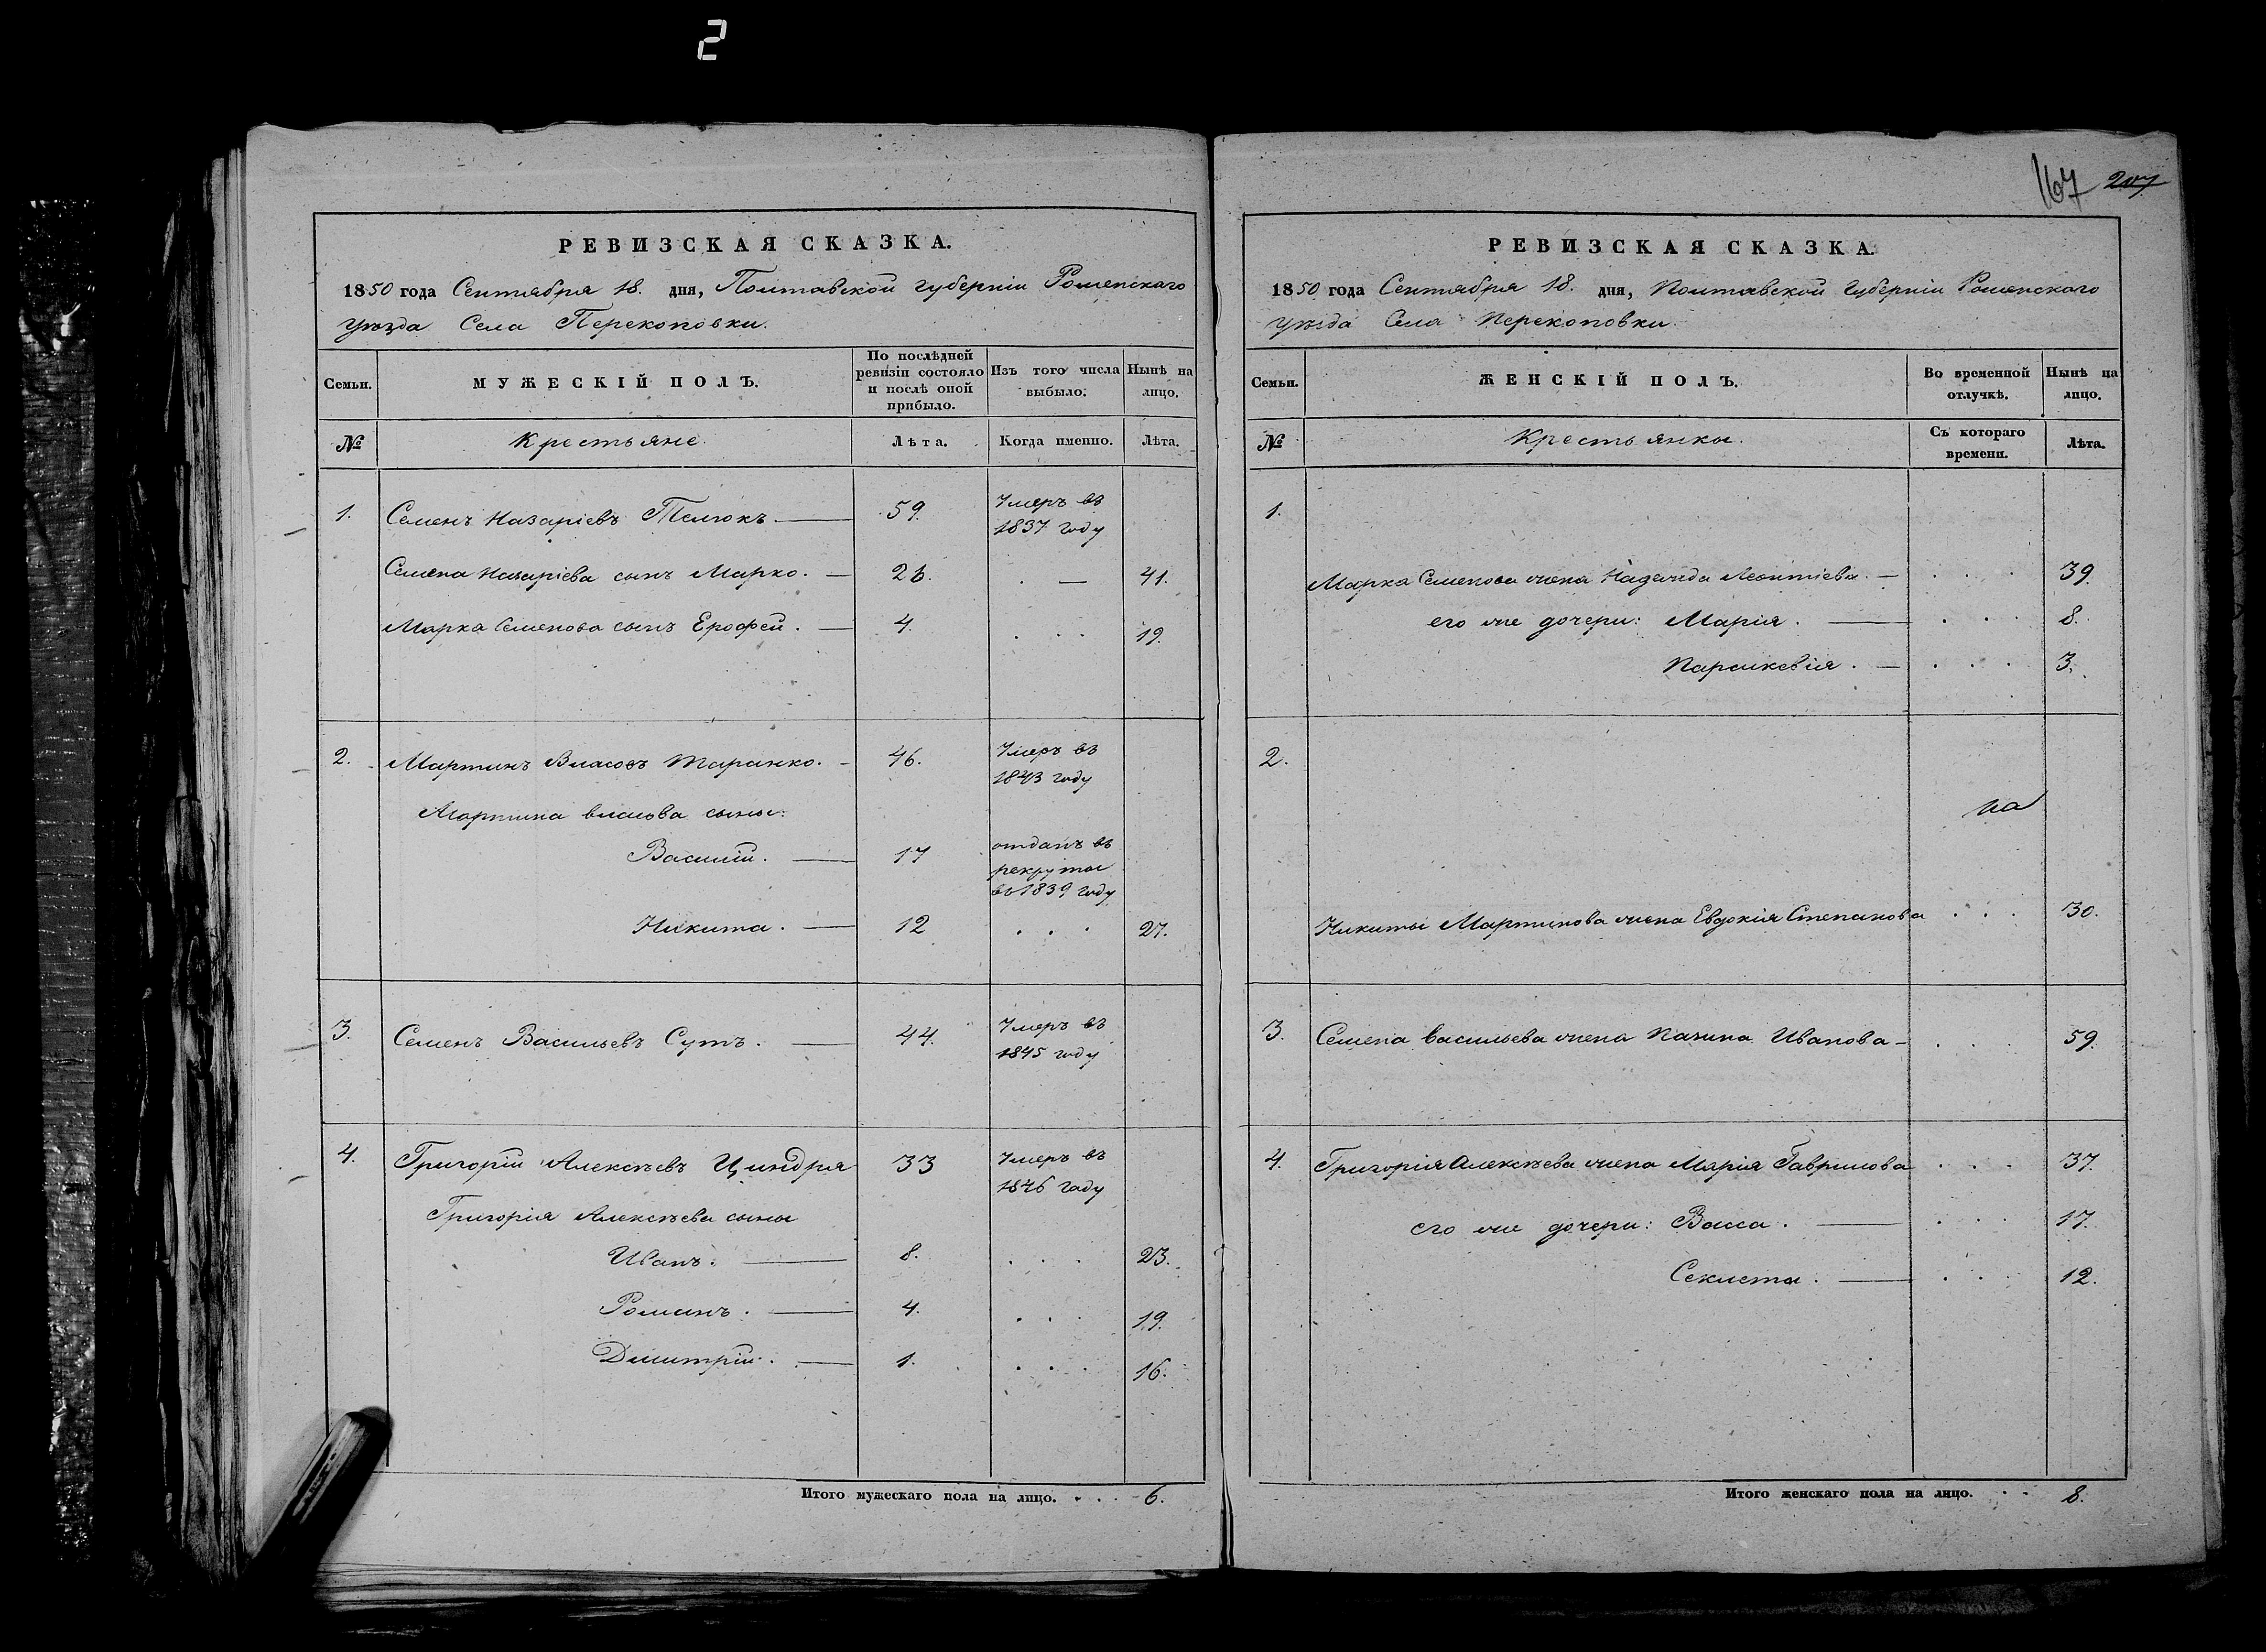 2
РЕВИЗСКАЯ СКАЗКА.
1850 года Сентября 18. дня, Полтавской губерніи Роменскаго
уѣзда Села Перекоповки.
Семьи.
МУЖЕСКІЙ ПОЛЪ.
По послѣдней ревизіи состояло и послѣ оной прибыло.
Изъ того числа выбыло.
Нынѣ на лицо.
№
Крестьяне.
Лѣта.
Когда именно.
Лѣта.
1. Семенъ Назаріевъ 59. Умеръ въ
1837 году
Семена Назаріева сынъ Марко. — 26. — 41.
Марка Семенова сынъ Ерофей. — 4. . . . 19.
2. Мартинъ Власовъ Таранко. - 46. Умеръ въ
1843 году
Мартина власова сыны:
Василій. — 17 отданъ въ
рекруты
въ 1839 году
Никита. — 12 . . . 27.
3. Семенъ Васильевъ Сутъ. — 44. Умеръ въ
1845 году
4. Григорій Алексѣевъ Циндря 33 Умеръ въ
1846 году
Григорія Алексѣева сыны
Иванъ. — 8. . . . 23.
Романъ. — 4. . . . 19.
Димитрій. — 1. . . . 16.
Итого мужескаго пола на лицо. . . . 6.
167 207
РЕВИЗСКАЯ СКАЗКА.
1850 года Сентября 18. дня, Полтавской Губерніи Роменскаго
уѣзда Села Перекоповки.
Семьи.
ЖЕНСКІЙ ПОЛЪ.
Во временной отлучкѣ.
Нынѣ на лицо.
№
Крестьянки.
Съ котораго времени.
Лѣта.
1.
Марка Семенова жена Надежда Леонтіева. — . . . 39.
его же дочери: Марія. — . . . 8.
Параскевія. — . . . 3.
2.
на
Никиты Мартинова жена Евдокія Степанова . . . 30.
3. Семена васильева жена Иванова — . . . 59.
4. Григорія Алексѣева жена Марія Гаврилова . . . 37.
его же дочери: Васса. — . . . 17.
Секлета. — . . . 12.
Итого женскаго пола на лицо. . . 8.